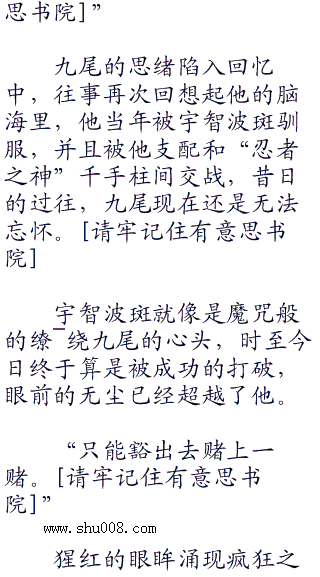 思书院]”
九尾的思绪陷入回忆
中，往事再次回想起他的脑
海里，他当年被宇智波斑驯
服，并且被他支配和“忍者
之神”千手柱间交战，昔日
的过往，九尾现在还是无法
忘怀。[请牢记住有意思书
院]
宇智波斑就像是魔咒般
的缭_绕九尾的心头，时至今
日终于算是被成功的打破，
眼前的无尘已经超越了他。
“只能豁出去赌上一
赌。[请牢记住有意思书
院]”
www.shu008.com
猩红的眼眸涌现疯狂之